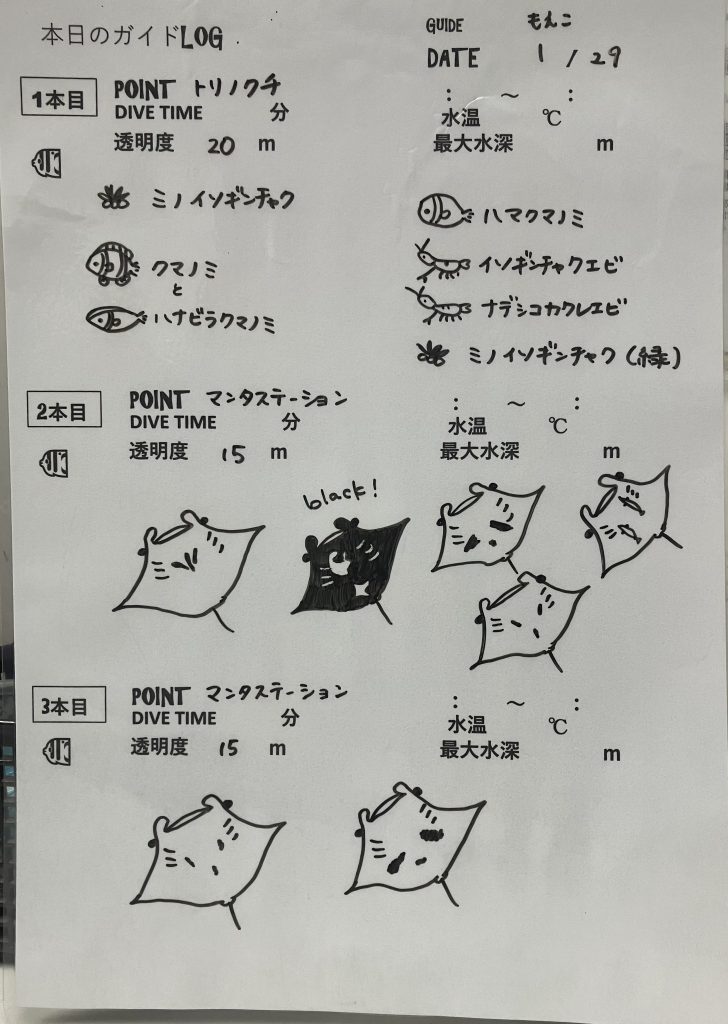 本日のガイドLOG
GUIDE もえこ
DATE 1 / 29
1本目 POINT トリノクチ : ～ :
DIVE TIME 分 水温 ℃
透明度 20 m 最大水深 m
ミノイソギンチャク
クマノミ
と
ハナビラクマノミ
ハマクマノミ
イソギンチャクエビ
ナデシコカクレエビ
ミノイソギンチャク(緑)
2本目 POINT マンタステーション : ～ :
DIVE TIME 分 水温 ℃
透明度 15 m 最大水深 m
black!
3本目 POINT マンタステーション : ～ :
DIVE TIME 分 水温 ℃
透明度 15 m 最大水深 m